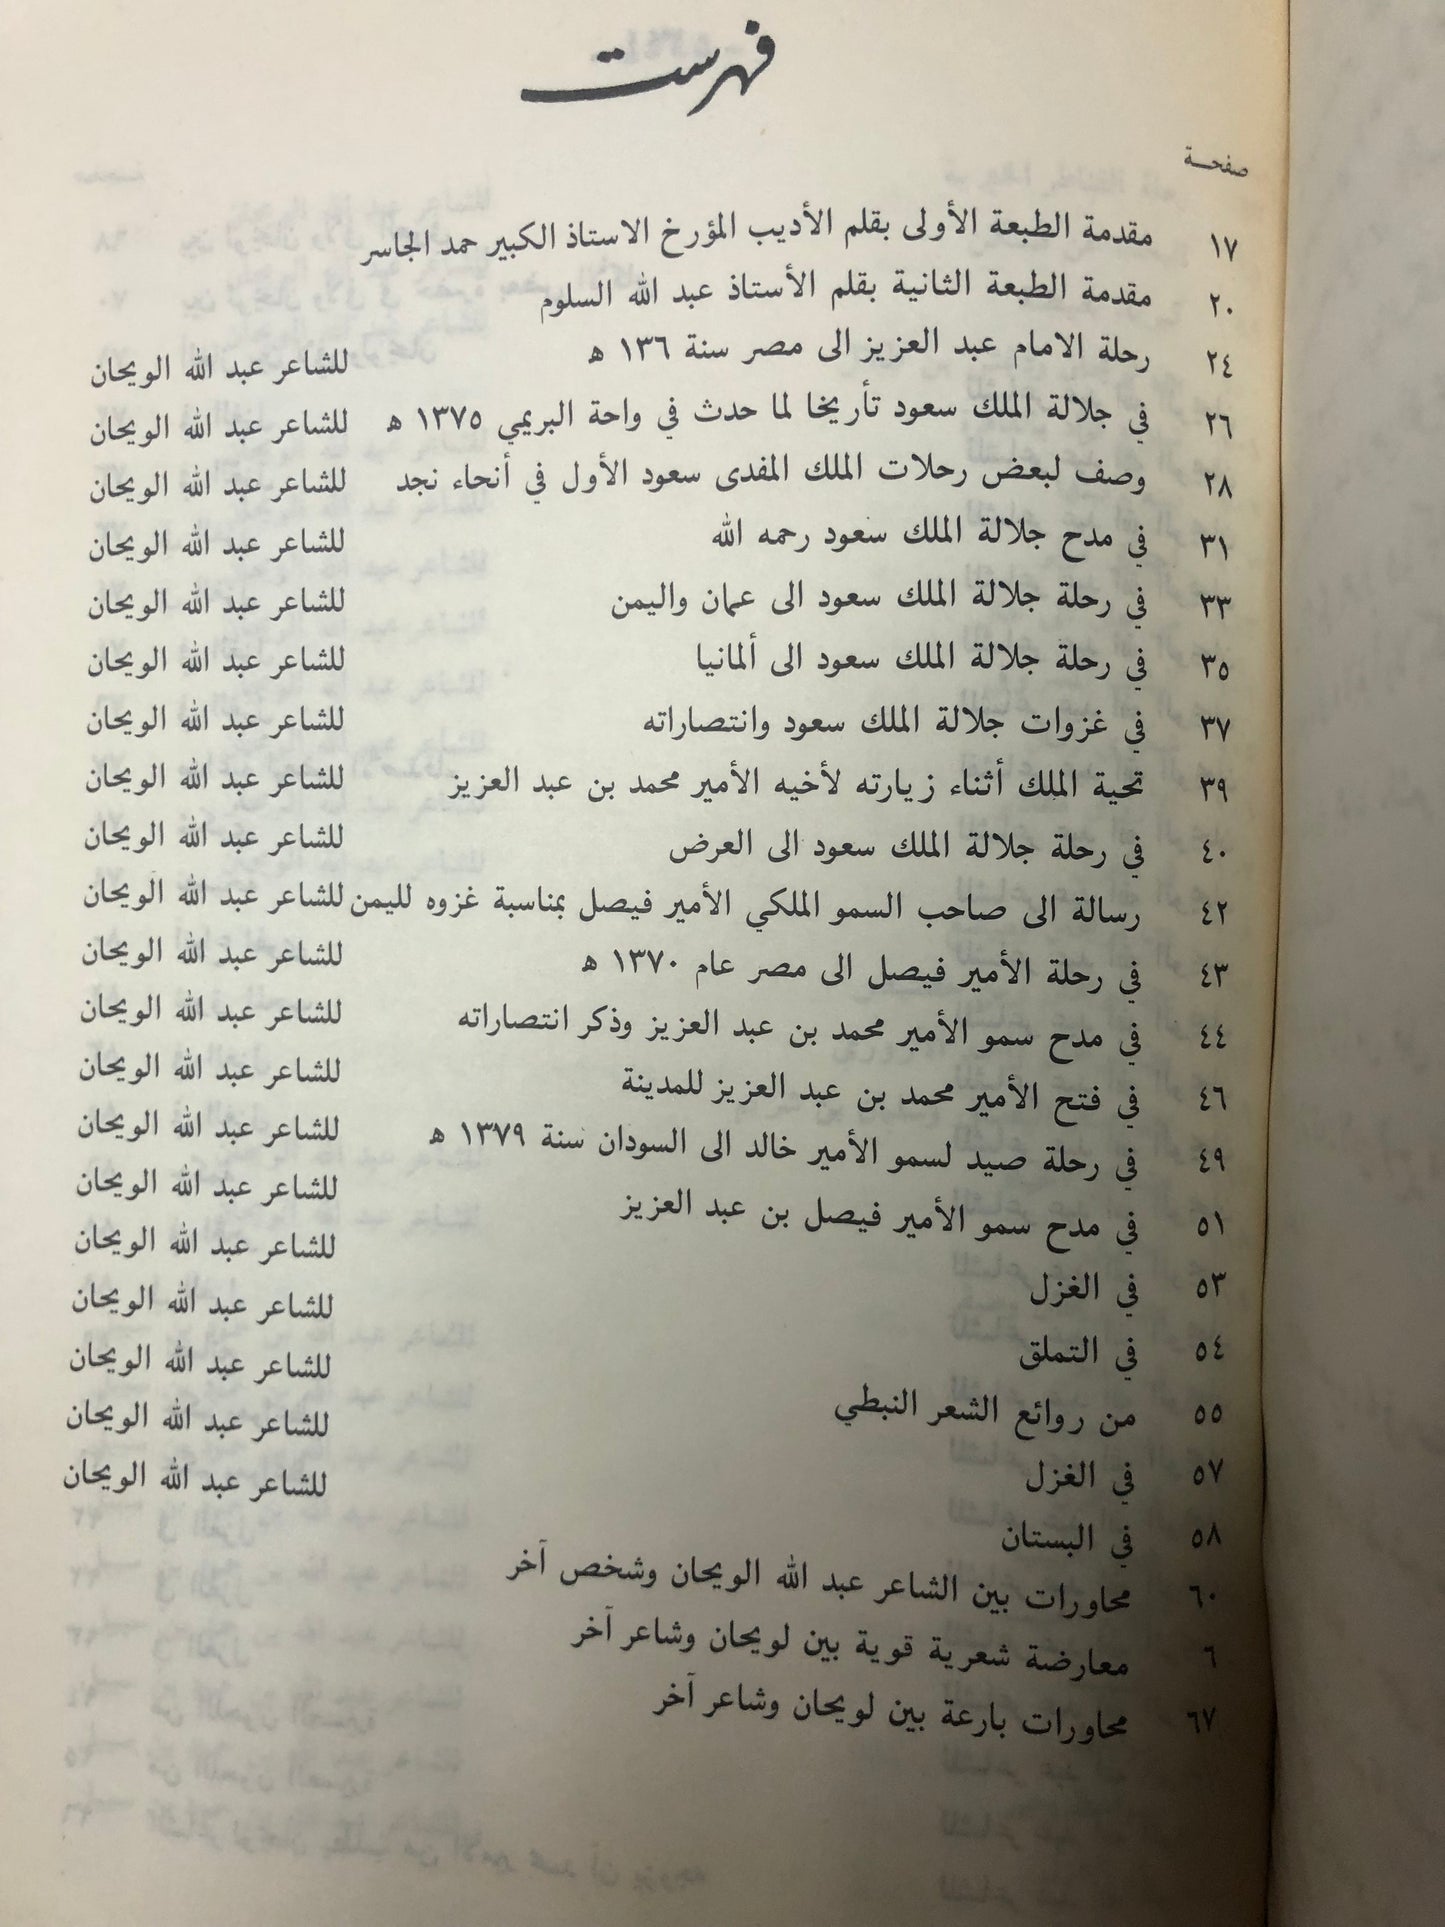 فهرست
صفحة
١٧ مقدمة الطبعة الأولى بقلم الأديب المؤرخ الاستاذ الكبير حمد الجاسر
٢٠ مقدمة الطبعة الثانية بقلم الأستاذ عبد الله السلوم
٢٤ رحلة الامام عبد العزيز الى مصر سنة ١٣٦ ه للشاعر عبد الله الويحان
٢٦ في جلالة الملك سعود تأريخا لما حدث في واحة البريمي ١٣٧٥ ه للشاعر عبد الله الويحان
٢٨ وصف لبعض رحلات الملك المفدى سعود الأول في أنحاء نجد للشاعر عبد الله الويحان
٣١ في مدح جلالة الملك سعود رحمه الله للشاعر عبد الله الويحان
٣٣ في رحلة جلالة الملك سعود الى عمان واليمن للشاعر عبد الله الويحان
٣٥ في رحلة جلالة الملك سعود الى ألمانيا للشاعر عبد الله الويحان
٣٧ في غزوات جلالة الملك سعود وانتصاراته للشاعر عبد الله الويحان
٣٩ تحية الملك أثناء زيارته لأخيه الأمير محمد بن عبد العزيز للشاعر عبد الله الويحان
٤٠ في رحلة جلالة الملك سعود الى العرض للشاعر عبد الله الويحان
٤٢ رسالة الى صاحب السمو الملكي الأمير فيصل بمناسبة غزوه لليمن للشاعر عبد الله الويحان
٤٣ في رحلة الأمير فيصل الى مصر عام ١٣٧٠ ه للشاعر عبد الله الويحان
٤٤ في مدح سمو الأمير محمد بن عبد العزيز وذكر انتصاراته للشاعر عبد الله الويحان
٤٦ في فتح الأمير محمد بن عبد العزيز للمدينة للشاعر عبد الله الويحان
٤٩ في رحلة صيد لسمو الأمير خالد الى السودان سنة ١٣٧٩ ه للشاعر عبد الله الويحان
٥١ في مدح سمو الأمير فيصل بن عبد العزيز للشاعر عبد الله الويحان
٥٣ في الغزل للشاعر عبد الله الويحان
٥٤ في التملق للشاعر عبد الله الويحان
٥٥ من روائع الشعر النبطي للشاعر عبد الله الويحان
٥٧ في الغزل للشاعر عبد الله الويحان
٥٨ في البستان للشاعر عبد الله الويحان
٦٠ محاورات بين الشاعر عبد الله الويحان وشخص آخر
٦ معارضة شعرية قوية بين لويحان وشاعر آخر
٦٧ محاورات بارعة بين لويحان وشاعر آخر